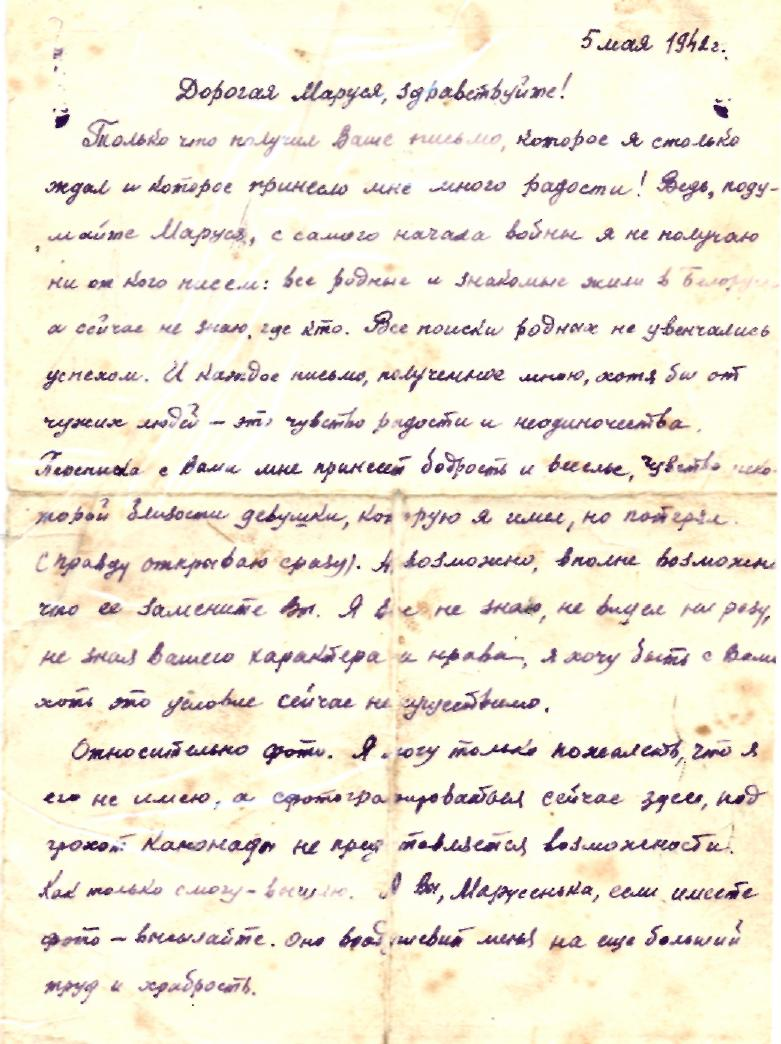 5 мая 1942г.
Дорогая Маруся, здравствуйте!
Только что получил Ваше письмо, которое я столько
ждал и которое принесло мне много радости! Ведь, поду-
майте Маруся, с самого начала войны я не получаю
ни от кого писем: все родные и знакомые жили в
а сейчас не знаю, где кто. Все поиски родных не увенчались
успехом. И каждое письмо, полученное мною, хотя бы от
чужих людей – это чувство радости и неодиночества.
Переписка с Вами мне принесет бодрость и веселье, чувство неко-
торой близости девушки, которую я имел, но потерял.
(правду открываю сразу). А возможно, вполне возможно
что ее замените Вы. Я Вас не знаю, не видел ни разу,
не зная Вашего характера и нрава, я хочу быть с Вами
хоть это условие сейчас не существимо.
Относительно фото. Я могу только пожалеть, что я
его не имею, а сфотографироваться сейчас здесь, под
грохот канонады не представляется возможности.
Как только смогу – вышлю. А Вы, Марусенька, если имеете
фото – высылайте. Оно воодушевит меня на еще больший
труд и храбрость.